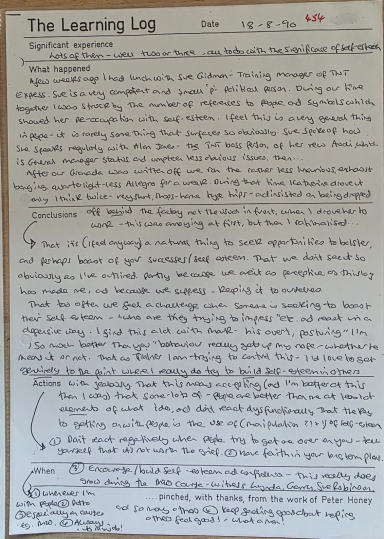 The Learning Log Date 18-8-90 454
Significant experience
Lots of them - well two or three - all to do with the significance of self-esteem
What happened
A few weeks ago I had lunch with Sue Gidman - Training manager of TNT
Express. Sue is a very competent and small 'p' - political person. During our time
together I was struck by the number of references to people and symbols which
showed her pre-occupation with self-esteem. I feel this is a very general thing
in people - it is rarely something that surfaces so obviously. Sue spoke of how
she speaks regularly with Alan Jones - the TNT boss person, of her new Audi which
is General manager status and umpteen less obvious issues, then...
After our Granada was written off we ran the rather less luxurious, exhaust
banging, quarterlight-less Allegro for a week. During that time Katherine drove it
only twice - very short, shops-home type trips - and insisted on being dropped
Conclusions off behind the factory not the school in front, when I drove her to
work - this was annoying at first, but then I rationalised...
That it's (I feel anyway) a natural thing to seek opportunities to bolster,
and perhaps boast of your successes/self esteem. That we don't see it so
obviously as I've outlined, partly because we aren't as perceptive as this log
has made me, and because we suppress - keeping it to ourselves
That too often we feel a challenge when someone is seeking to boost
their self esteem - 'who are they trying to impress' etc. and react in a
defensive way. I find this a lot with Mark - his overt, posturing "I'm
so much better than you" behaviour really gets up my nose - whether he
means it or not. That as Trainer I am trying to control this - I'd love to get
genuinely to the point where I really do try to build self-esteem in others
Actions with jealousy. That this means accepting (and I'm better at this
than I was) that some - lots of - people are better than me at least
elements of what I do, and don't react dysfunctionally. That the key
to getting on with people is the use of (manipulation ?!*) of self-esteem
① Don't react negatively when people try to get one over on you - tell
yourself that it's not worth the grief. ② Have faith in your long term plans.
When ③ Encourage/build self-esteem and confidence - this really does
① Wherever I'm show during the MBO course - witness Lynda, Garry, Sue Robinson
with people ② Ditto ....pinched, with thanks, from the work of Peter Honey
③ especially on courses and so many others ④ keep feeling good about helping
eg. MBO. ④ Always others feel good! - what a man!